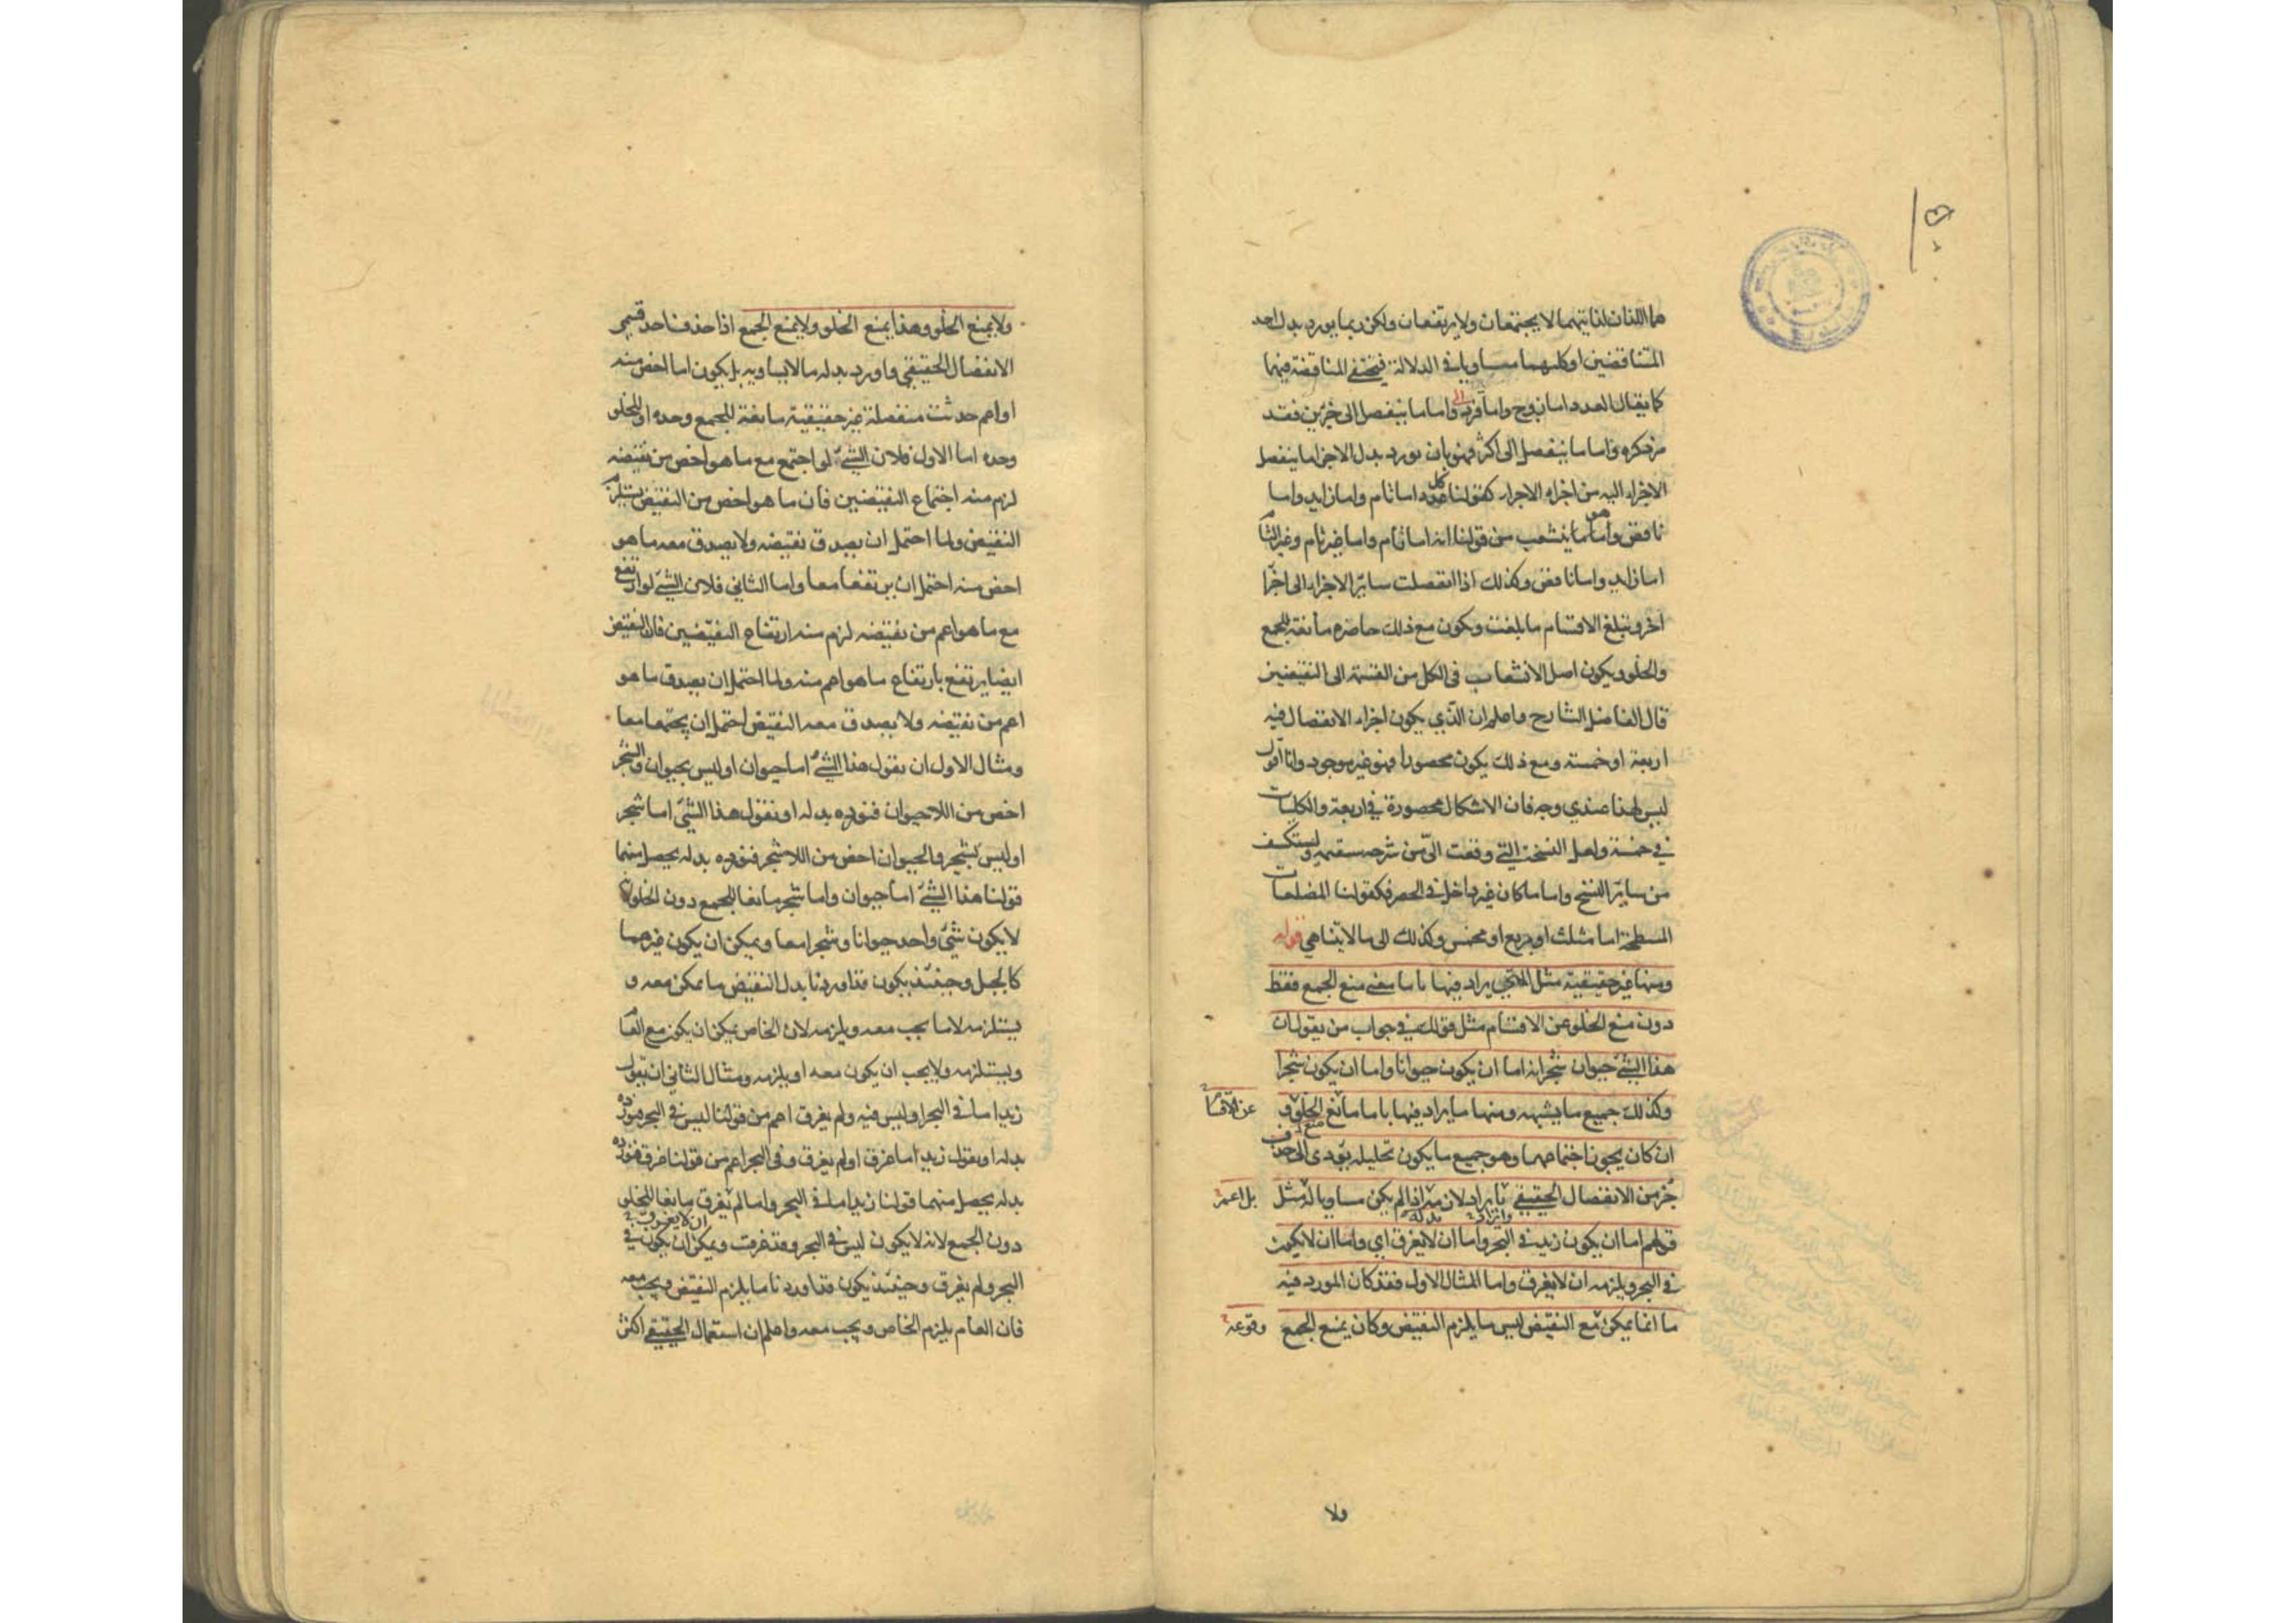 هما اللذان لذاتيهما لا يجتمعان ولا يرتفعان ولكن ربما يورد بدل احد
المتناقضين او كليهما مساويا في الدلالة فيختفي المناقضة فيهما
كما يقال العدد اما زوج واما فرد واما ما ينفصل الى جزئين فقد
مر ذكره واما ما ينفصل الى اكثر فهو بان يورد بدل الاجزاء ما ينفصل
الاجزاء اليه من اجزاء الاجزاء كقولنا كل عدد اما تام واما زايد واما
ناقص واما هو ما ينشعب من قولنا انه اما تام واما غير تام وغير التام
اما زايد واما ناقص وكذلك اذا انفصلت ساير الاجزاء الى اجزا
اخر وتبلغ الاقسام ما بلغت ويكون مع ذلك حاصره مانعة للجمع
والخلو ويكون اصل الانشعاب في الكل من القسمة الى النقيضين
قال الفاضل الشارح واعلم ان الذي يكون اجزاء الانفصال فيه
اربعة او خمسة ومع ذلك يكون محصورا فهو غير موجود وانا اقول
ليس لهذا عندي وجه فان الاشكال محصورة في اربعة والكليات
في خمسة ولعل النسخة التي وقعت الى من شرحه سقيمه وليستكشف
من ساير النسخ واما ما كان غير داخل في الحصر فكقولنا المضلعات
المسطحة اما مثلث او مربع او مخمس وكذلك الى ما لا يتناهى قوله
ومنها غير حقيقية مثل التي يراد فيها باما معنى منع الجمع فقط
دون منع الخلو عن الاقسام مثل قولك في جواب من يقول ان
هذا الشئ حيوان شجر انه اما ان يكون حيوانا واما ان يكون شجرا
وكذلك جميع ما يشبهه ومنها ما يراد فيها باما مانع الخلو و
عن الاقسام
ان كان يجوز اجتماعهما وهو جميع ما يكون تحليله يؤدي الى حذف
جزء من الانفصال الحقيقي وايراد لازمه بدله اذا لم يكن مساويا له مثل
بل اعم
قولهم اما ان يكون زيد في البحر واما ان لا يغرق اي واما ان لا يكون
في البحر ويلزمه ان لا يغرق واما المثال الاول فقد كان المورد فيه
ما انما يمكن مع النقيض ليس ما يلزم النقيض وكان يمنع الجمع
وقوعه
ولا
ولا يمنع الخلو وهذا يمنع الخلو ولا يمنع الجمع اذا حذفنا احد قسمي
الانفصال الحقيقي واورد بدله ما لا يساويه بل يكون اما اخص منه
او اعم حدثت منفصلة غير حقيقية مانعة للجمع وحده او للخلو
وحده اما الاول فلان الشئ لو اجتمع مع ما هو اخص من نقيضه
لزم منه اجتماع النقيضين فان ما هو اخص من النقيض يستلزم
النقيض ولما احتمل ان يصدق نقيضه ولا يصدق معه ما هو
اخص منه احتمل ان يرتفعا معا واما الثاني فلان الشئ لو ارتفع
مع ما هو اعم من نقيضه لزم منه ارتفاع النقيضين فان النقيض
ايضا يرتفع بارتفاع ما هو اعم منه ولما احتمل ان يصدق ما هو
اعم من نقيضه ولا يصدق معه النقيض احتمل ان يجتمعا معا
ومثال الاول ان نقول هذا الشئ اما حيوان او ليس بحيوان والشجر
اخص من اللاحيوان فنورده بدله او نقول هذا الشئ اما شجر
او ليس بشجر والحيوان اخص من اللاشجر فنورده بدله يحصل منهما
قولنا هذا الشئ اما حيوان واما شجر مانعا للجمع دون الخلو
لا يكون شئ واحد حيوانا وشجرا معا ويمكن ان يكون غيرهما
كالجبل وحينئذ يكون قد اوردنا بدل النقيض ما يمكن معه و
يستلزمه لا ما يجب معه ويلزمه لان الخاص يمكن ان يكون مع العام
ويستلزمه ولا يجب ان يكون معه او يلزمه ومثال الثاني ان نقول
زيد اما في البحر او ليس فيه ولم يغرق اعم من قولنا ليس في البحر فنورده
بدله او نقول زيد اما غرق او لم يغرق وفي البحر اعم من قولنا غرق فنورده
بدله يحصل منهما قولنا زيد اما في البحر واما لم يغرق مانعا للخلو
دون الجمع لانه لا يكون ليس في البحر وقد غرق ويمكن ان يكون في
البحر ولم يغرق وحينئذ يكون قد اوردنا ما يلزم النقيض ويجب معه
فان العام يلزم الخاص ويجب معه واعلم ان استعمال الحقيقي اكثر